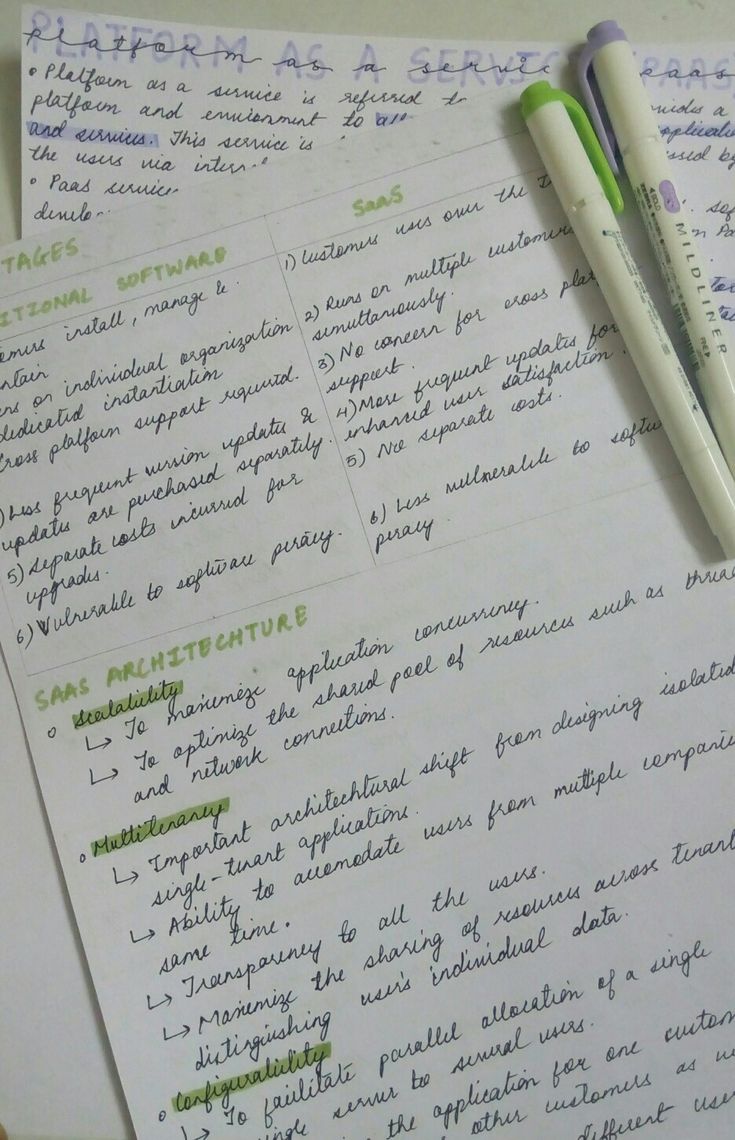 PLATFORM AS A SERVICE (PAAS)
Platform as a service PaaS
• Platform as a service is referred to
platform and environment to all
and services. This service is
the users via inter
• Paas service
develo
vides a
applicati
ssed by
TAGES
ITIONAL SOFTWARE
omers install, manage &
ntain
ns on individual organization
dedicated instantiation
Cross platform support required.
Less frequent version updates &
updates are purchased separately.
5) Separate costs incurred for
upgrades.
6) Vulnerable to software piracy.
SaaS
1) Customers uses over the I
2) Runs on multiple customers
simultaneously.
3) No concern for cross plat
support.
4) More frequent updates for
enhanced user satisfaction.
5) No separate costs.
6) Less vulnerable to softw
piracy.
SAAS ARCHITECHTURE
o Scalability
↳ To maximize application concurrency.
↳ To optimize the shared pool of resources such as threa
and network connections.
o Multitenancy
↳ Important architechtural shift from designing isolated
single-tenant applications.
↳ Ability to accomodate users from multiple companie
same time.
↳ Transparency to all the users.
↳ Maximize the sharing of resources across tenant
distinguishing user's individual data.
o Configurability
↳ To facilitate parallel allocation of a single
single server to several users.
the application for one custom
other customers as w
different user
MILDLINER